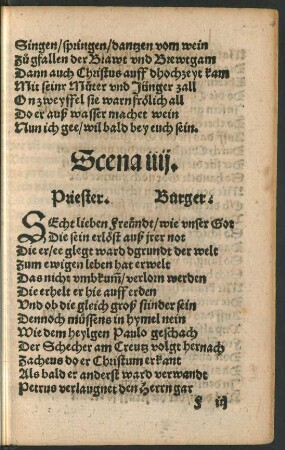 Singen/springen/dantzen vom wein
Zů gfallen der Brawt vnd Brewtgam
Dann auch Christus auff dhochzeyt kam
Mit seinr Můter vnd Jünger zall
On zweyffel sie warn frölich all
Do er auß wasser machet wein
Nun ich gee/wil bald bey euch sein.
Scena iiij.
Priester. Burger.
SEcht lieben Freündt/wie vnser Got
Die sein erlöst auß jrer not
Die er/ee glegt ward dgrundt der welt
Zum ewigen leben hat erwelt
Das nicht vmbkum/verlorn werden
Die erhelt er hie auff erden
Vnd ob die gleich groß sünder sein
Dennoch müssens in hymel nein
Wie dem heylgen Paulo geschach
Der Schecher am Creutz volgt hernach
Zacheus do er Christum erkant
Als bald er anderst ward verwandt
Petrus verlaugnet den Herrn gar
F iij